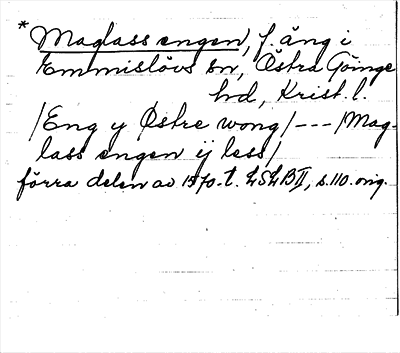 * Maglass engen, f. äng i
Emmislövs sn, Östra Göinge
hd, Krist. l.
/Eng y Østre wong/---/Mag-
lass engen ij less/
förra delen av 1570-t. LSLB II, s. 110. orig.